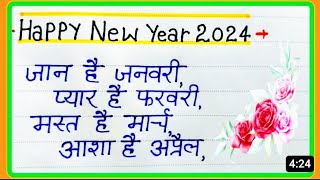 HAPPY NEW YEAR 2024
जान है जनवरी,
प्यार है फरवरी,
मस्त है मार्च,
आशा है अप्रैल,
4:24